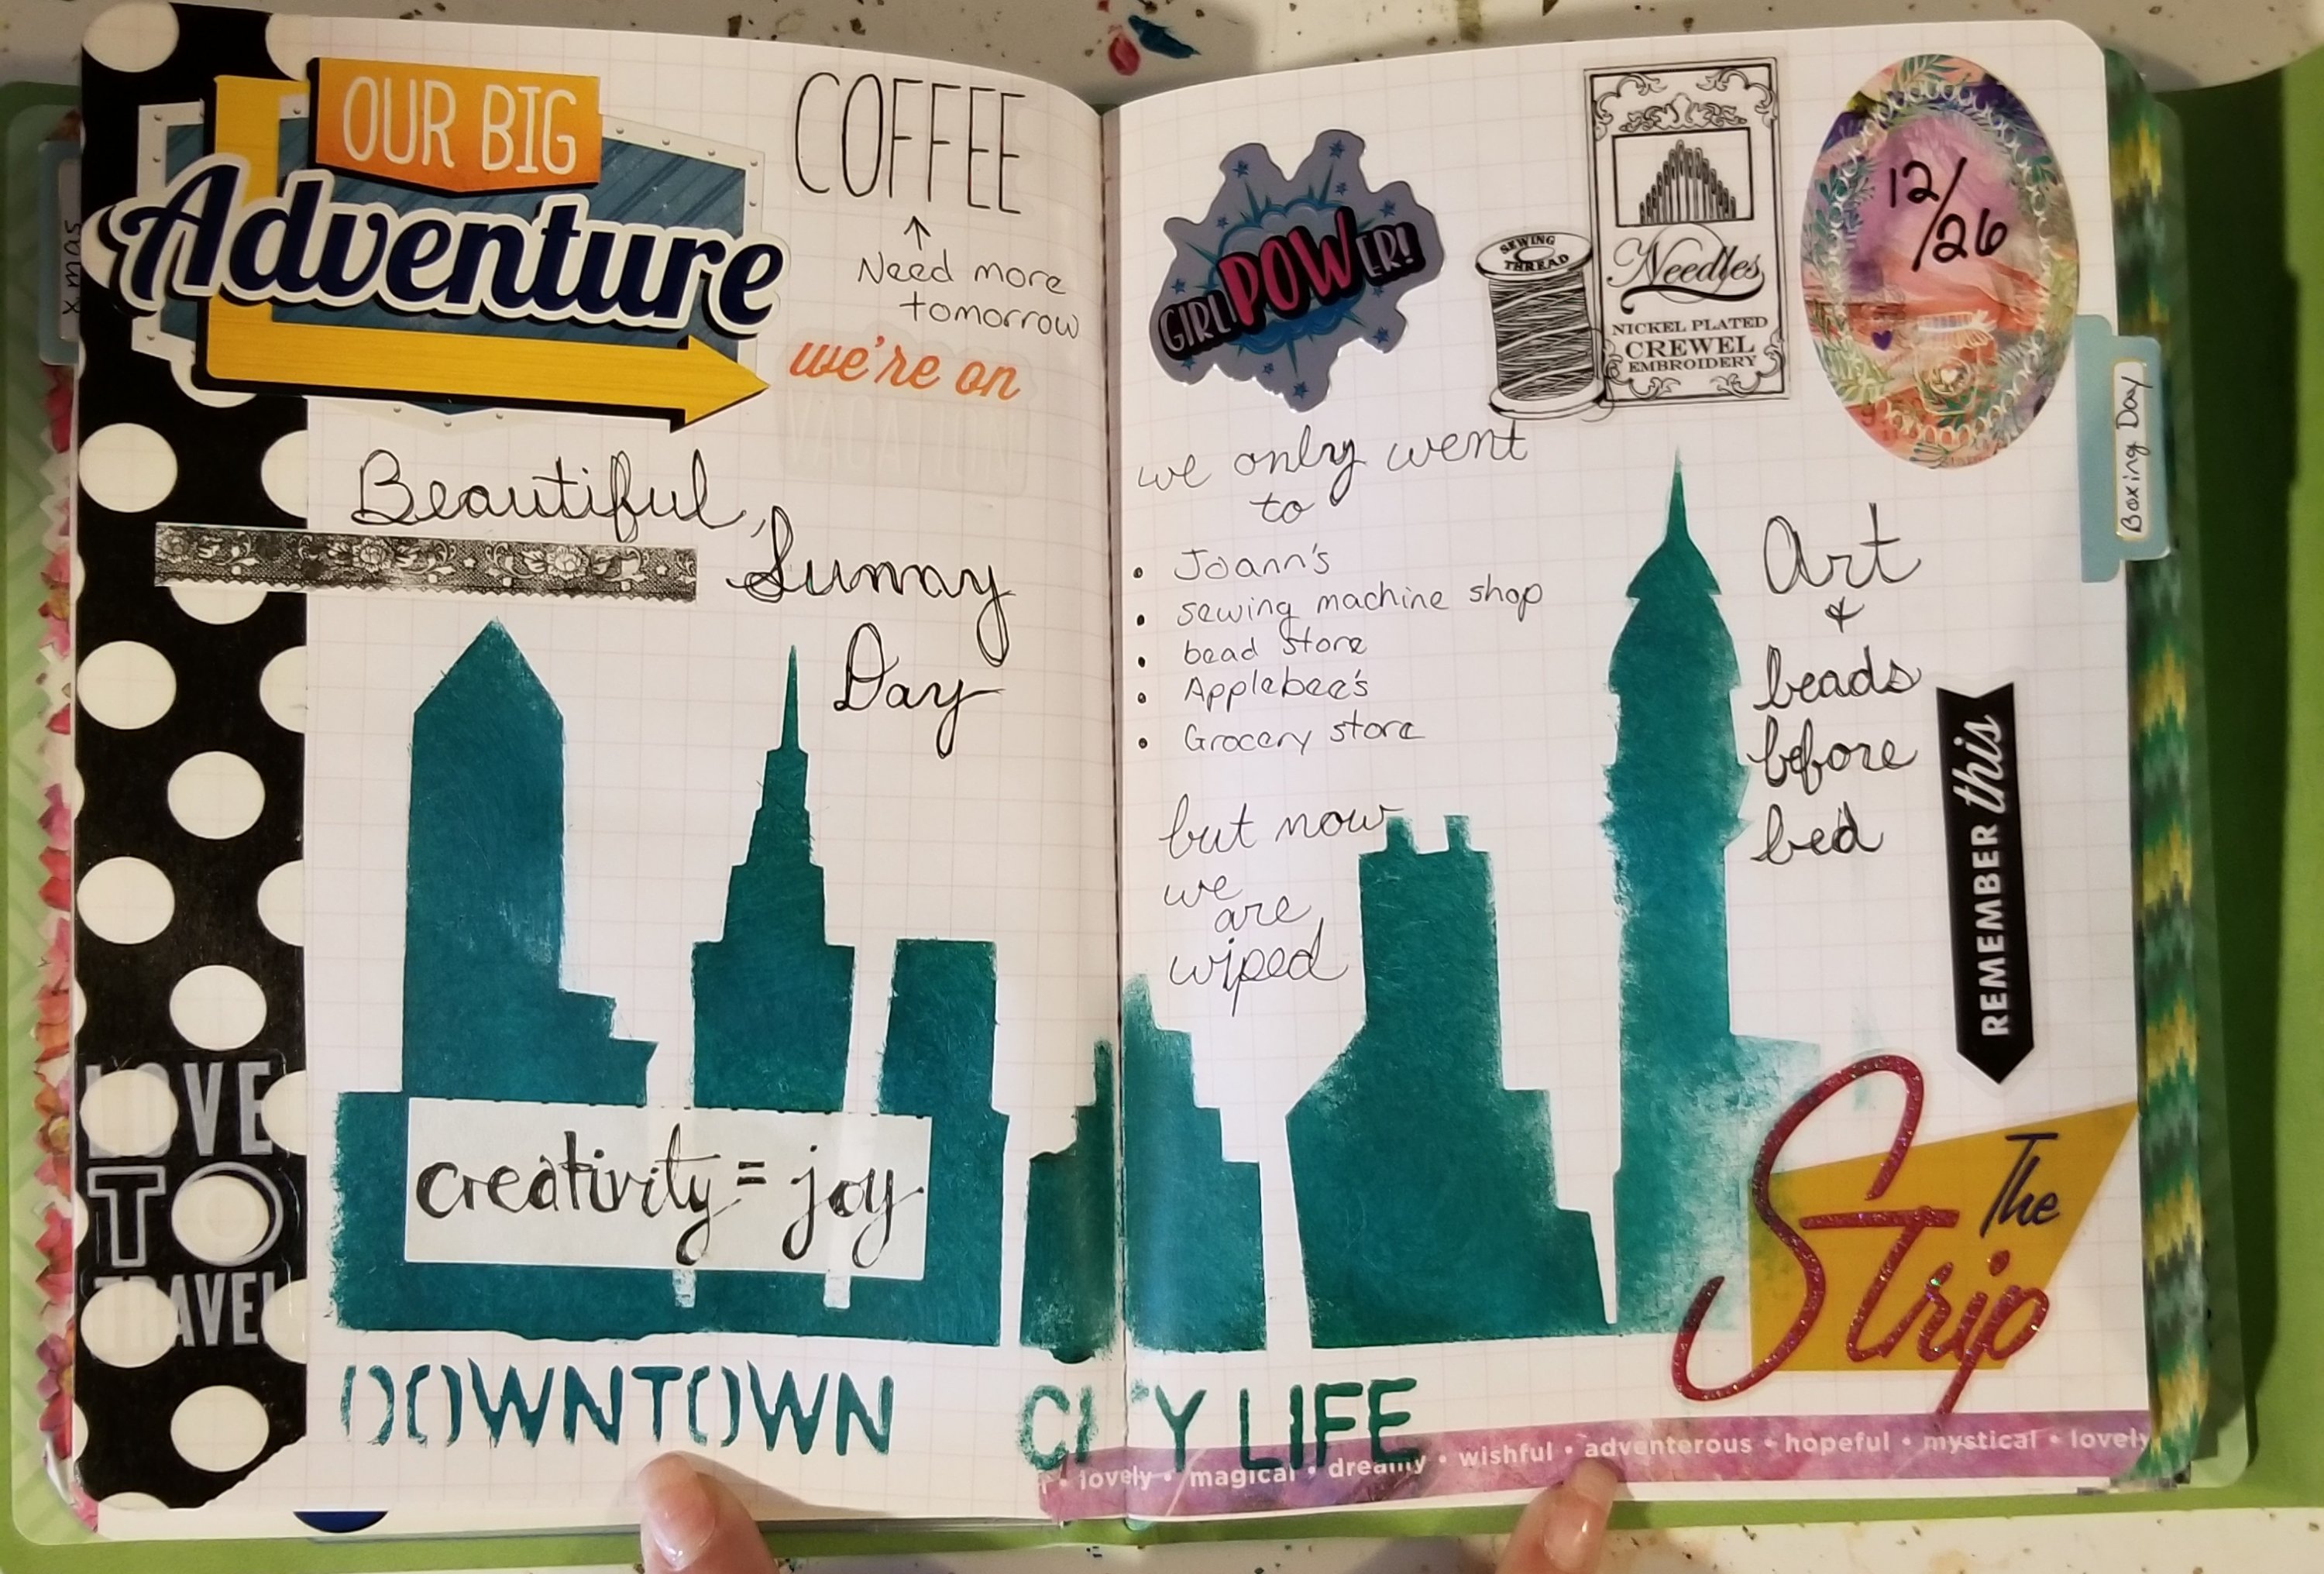 xmas
OUR BIG
Adventure
COFFEE
↑
Need more
tomorrow
we're on
VACATION
Beautiful,
Sunny
Day
LOVE
TO
TRAVEL
creativity = joy
DOWNTOWN
CITY LIFE
GIRL POWER!
SEWING
THREAD
Needles
NICKEL PLATED
CREWEL
EMBROIDERY
12/26
Boxing Day
we only went
to
• Joann's
• sewing machine shop
• bead store
• Applebee's
• Grocery store
but now
we
are
wiped
Art
&
beads
before
bed
REMEMBER this
The
Strip
• lovely • magical • dreamy • wishful • adventerous • hopeful • mystical • lovely